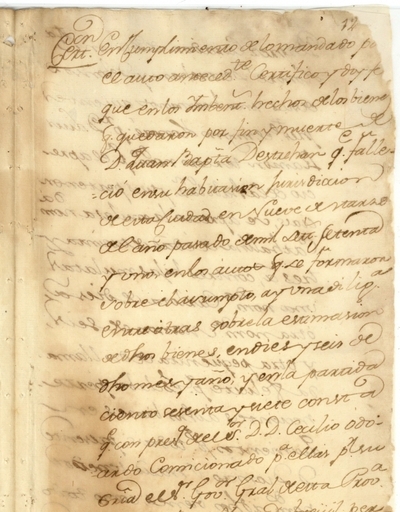 12
Cert.on En Cumplimiento de lo mandado p.r
el auto anteced.te Certifico y doy fe
que en los Imbent.s hechos de los biene
q.e quedaron por fin y muerte de
D. Juan Bap.ta Destrehan q.e falle-
=cio en su habitacion Jurisdicion
de esta Ciudad en Nueve de
de el año pasado de mil set.s setenta
y uno, en los autos q.e se formaron
sobre el asumpto, ay una dilig.a
entre otras sobre la estimacion
de dhos bienes, en dies y seis de
dho mes y año, y en la partida
ciento sesenta y siete const.a
q.e con pres.a del S.r D.D. Cecilio Odo-
ardo Comicionado p.a ellas p.r su
S.ria el S.r Gov.or Gral de esta Prov.a